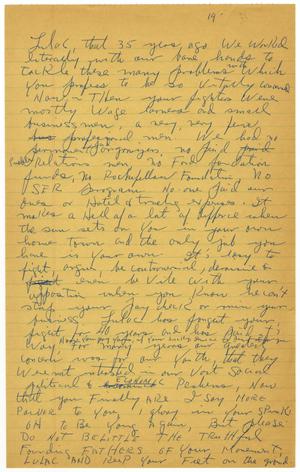 19
Lulac, that 35 years ago We Worked
literally with our bare hands to
tackle these many problems with Which
you profess to be so Vitally concerned
Now - Then your fighters Were
mostly Wage earners and small
businessmen, a very, very few
professional men We had no
government programs, no paid
Public Relations men, no Ford foundation
funds, No Rockefeller Foundation, No
SER Program. No one Paid our
dues or Hotel & traveling expenses. It
makes a Hell of a lot of difference when
the sun sets on You in your own
home Town and the only job you
have is Your own. It's easy to
fight, argue, be controversial, demanding &
even be Vile With your
opposition when you know he can't
stop your Pay check or ruin your
business. Lulac has fought your
fight for 40 years and has paid it's
Way
concern was for our Youth, that they
Were not interested in our Vast Social
political & ECONOMIC Problems, Now
that you Finally ARE I SAY MORE
POWER TO YOU, I glory in Your SPUNK
OH TO Be Young Again, But please
Do NOT BELITTLE THE Truthful
Founding FATHERS OF Your Movement,
LULAC AND KEEP Your Feet on the ground